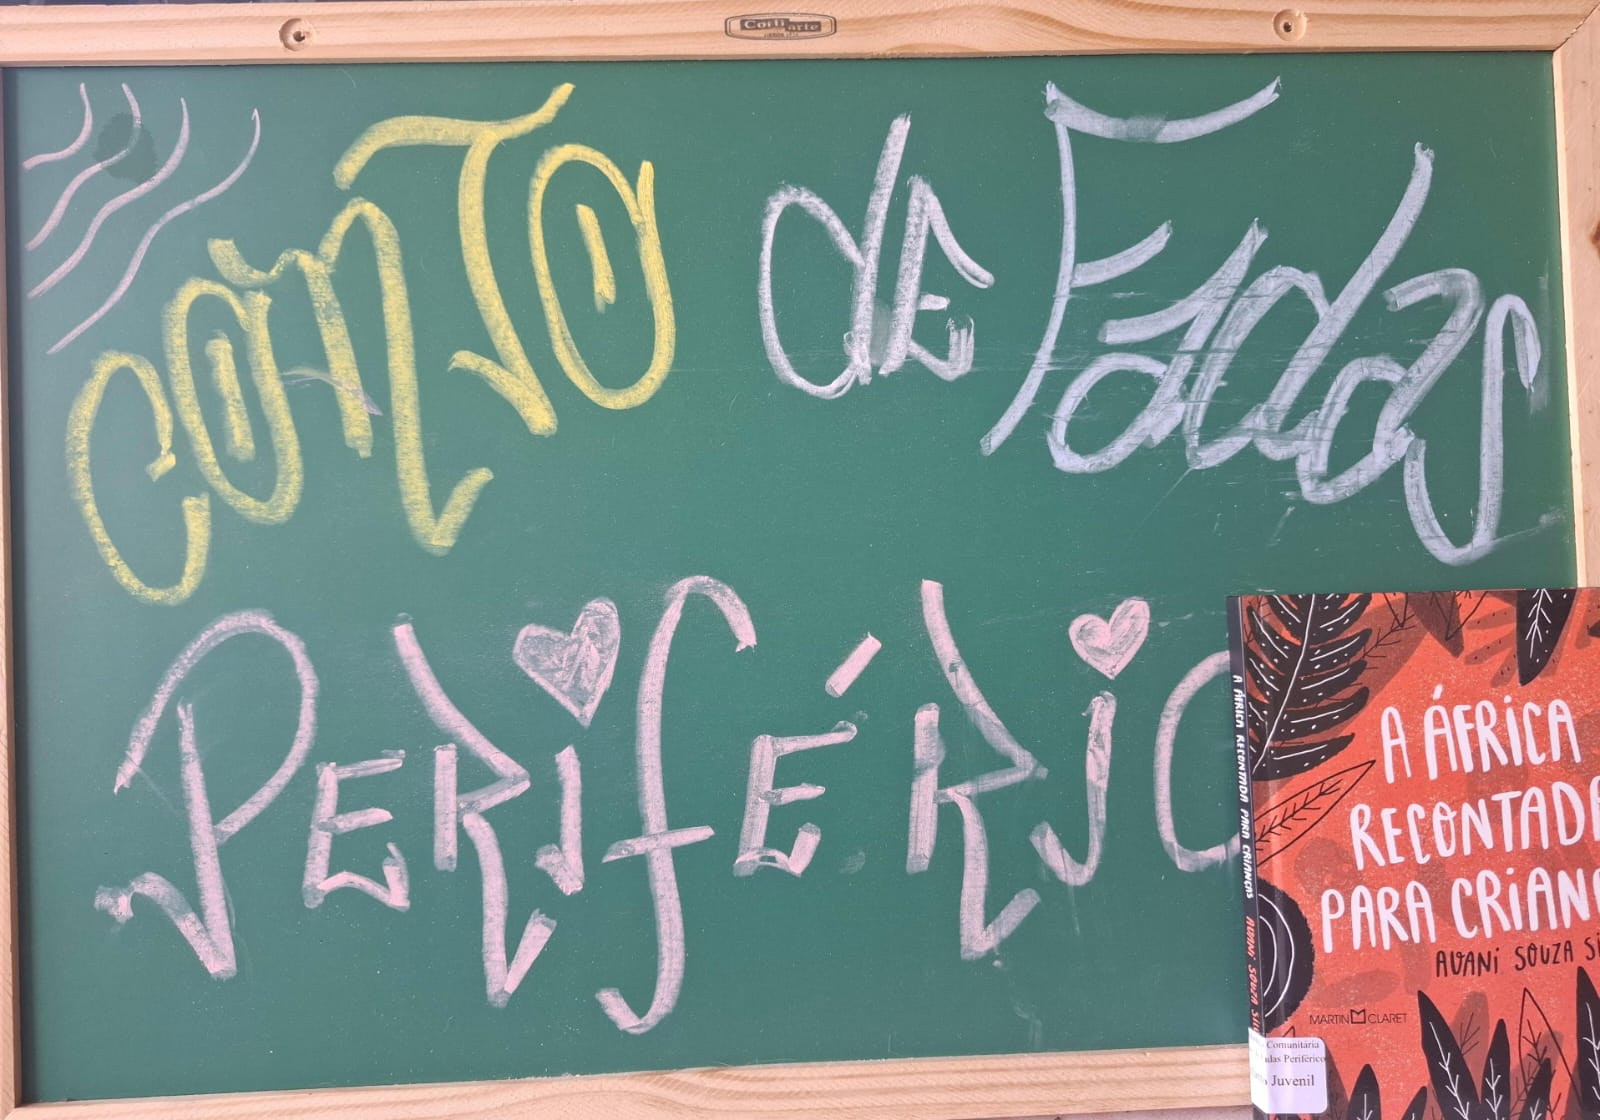 Corti arte
CONTO de Fadas
PERIFÉRICO
A ÁFRICA
RECONTADA
PARA CRIAN
AVANI SOUZA SI
MARTIN CLARET
A ÁFRICA RECONTADA PARA CRIANÇAS AVANI SOUZA SIL
Comunitária
adas Periférico
Juvenil